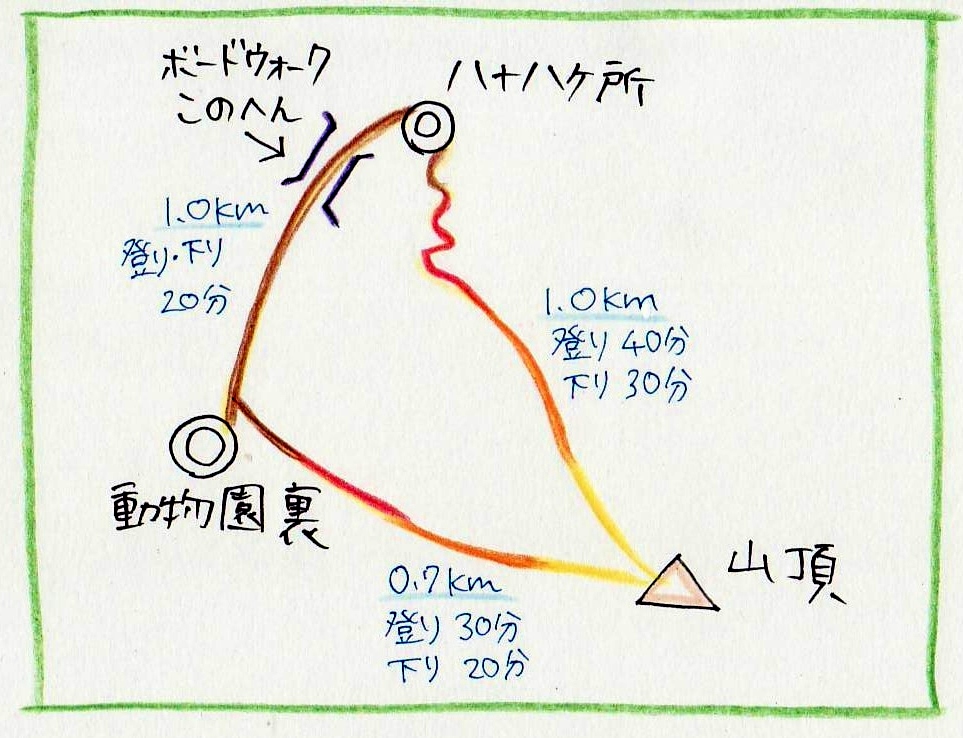 ボードウォーク
このへん
八十八ケ所
1.0km
登り・下り
20分
1.0km
登り 40分
下り 30分
動物園裏
山頂
0.7km
登り 30分
下り 20分